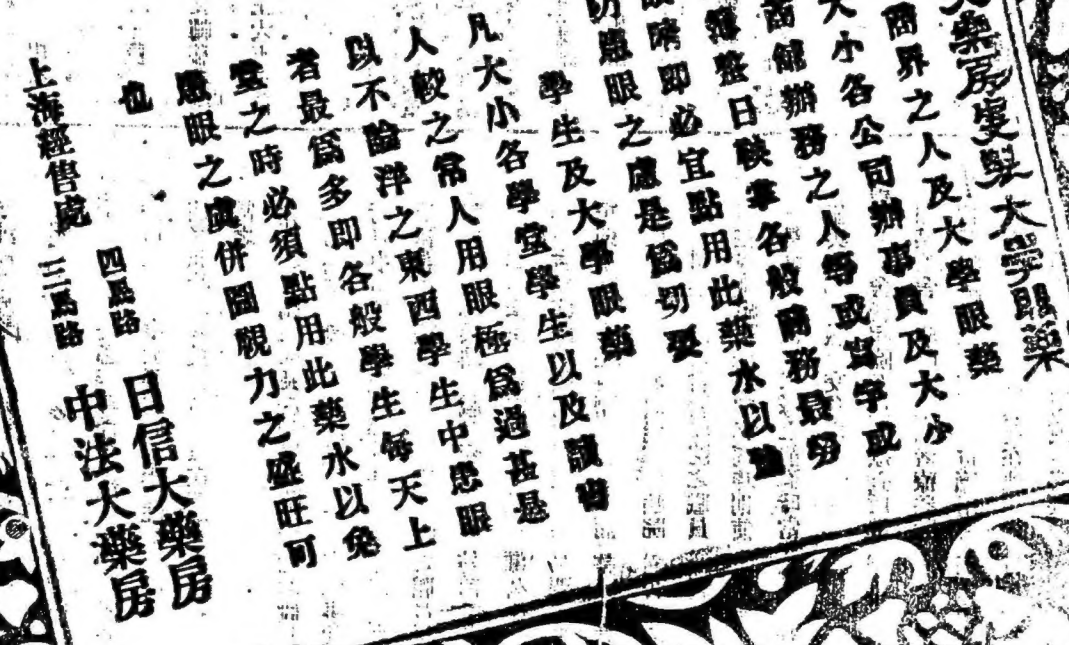 大藥房 大學眼藥
商界之人及大學眼藥
大小各公司辦事員及大小
商館辦務之人等或寫字或
簿整日執筆各般商務最勞
即必宜點用此藥水以
防患眼之慮是爲切要
學生及大學眼藥
凡大小各學堂學生以及讀書
人較之常人用眼極爲過甚是
以不論洋之東西學生中患眼
者最爲多即各般學生每天上
堂之時必須點用此藥水以免
患眼之虞併圖視力之盛旺可
也
上海經售處
四馬路 日信大藥房
三馬路 中法大藥房